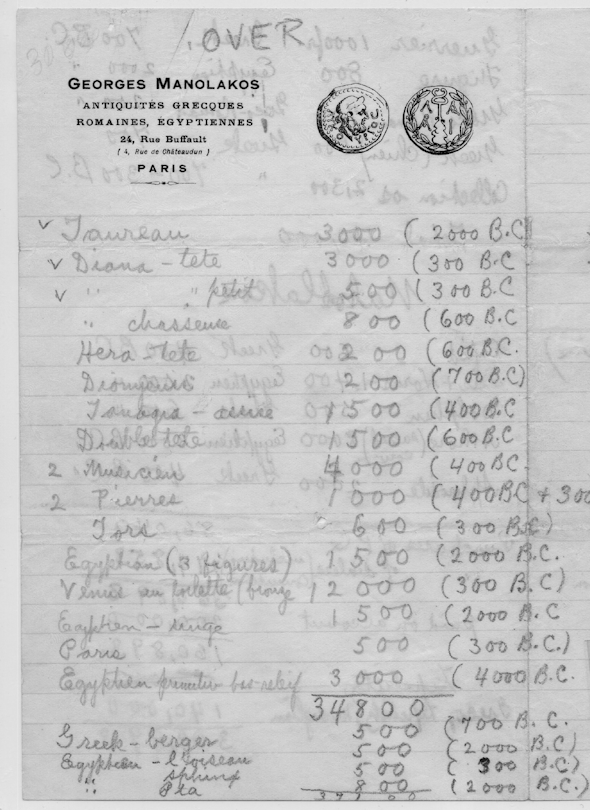 OVER
GEORGES MANOLAKOS
ANTIQUITÉS GRECQUES
ROMAINES, ÉGYPTIENNES
24, Rue Buffault
( 4, Rue de Châteaudun )
PARIS
✓ Taureau 3000 ( 2000 B.C
✓ Diana - tete 3000 ( 300 B.C
✓ " " petit 500 ( 300 B.C
" chasseuse 800 ( 600 B.C
Hera - tete 200 ( 600 B.C.
Dionysus 200 ( 700 B.C)
Tanagra - assise 1500 ( 400 B.C
Double tete 1500 ( 600 B.C
2 Musicien 4000 ( 400 BC
2 Pierres 1000 ( 400 BC + 300
Tors 600 ( 300 B.C)
Egyptian (3 figures) 1500 ( 2000 B.C.
Venus au toilette (bronze 12000 ( 300 B.C)
Egyptien - singe 1500 ( 2000 B.C
Paris 500 ( 300 B.C.)
Egyptien primitiv bas-relief 3000 ( 4000 B.C.
34800
Greek - berger 500 ( 700 B.C.
Egyptien - l'oiseau 500 ( 2000 B.C)
" sphinx 500 ( 300 B.C.)
" Pta 800 ( 2000 B.C.)